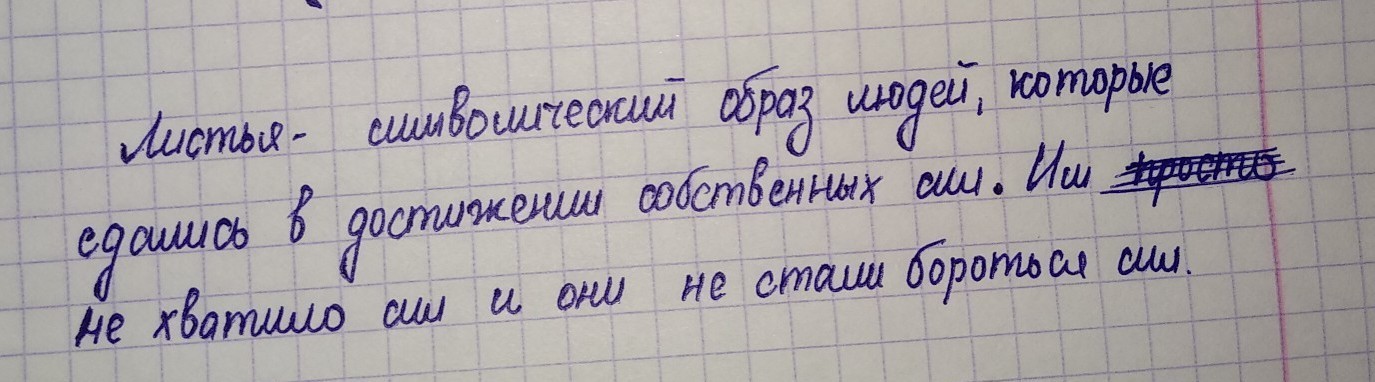 Листья - символический образ людей, которые
сдались в достижении собственных сил. Им просто
не хватило сил и они не стали бороться сил.